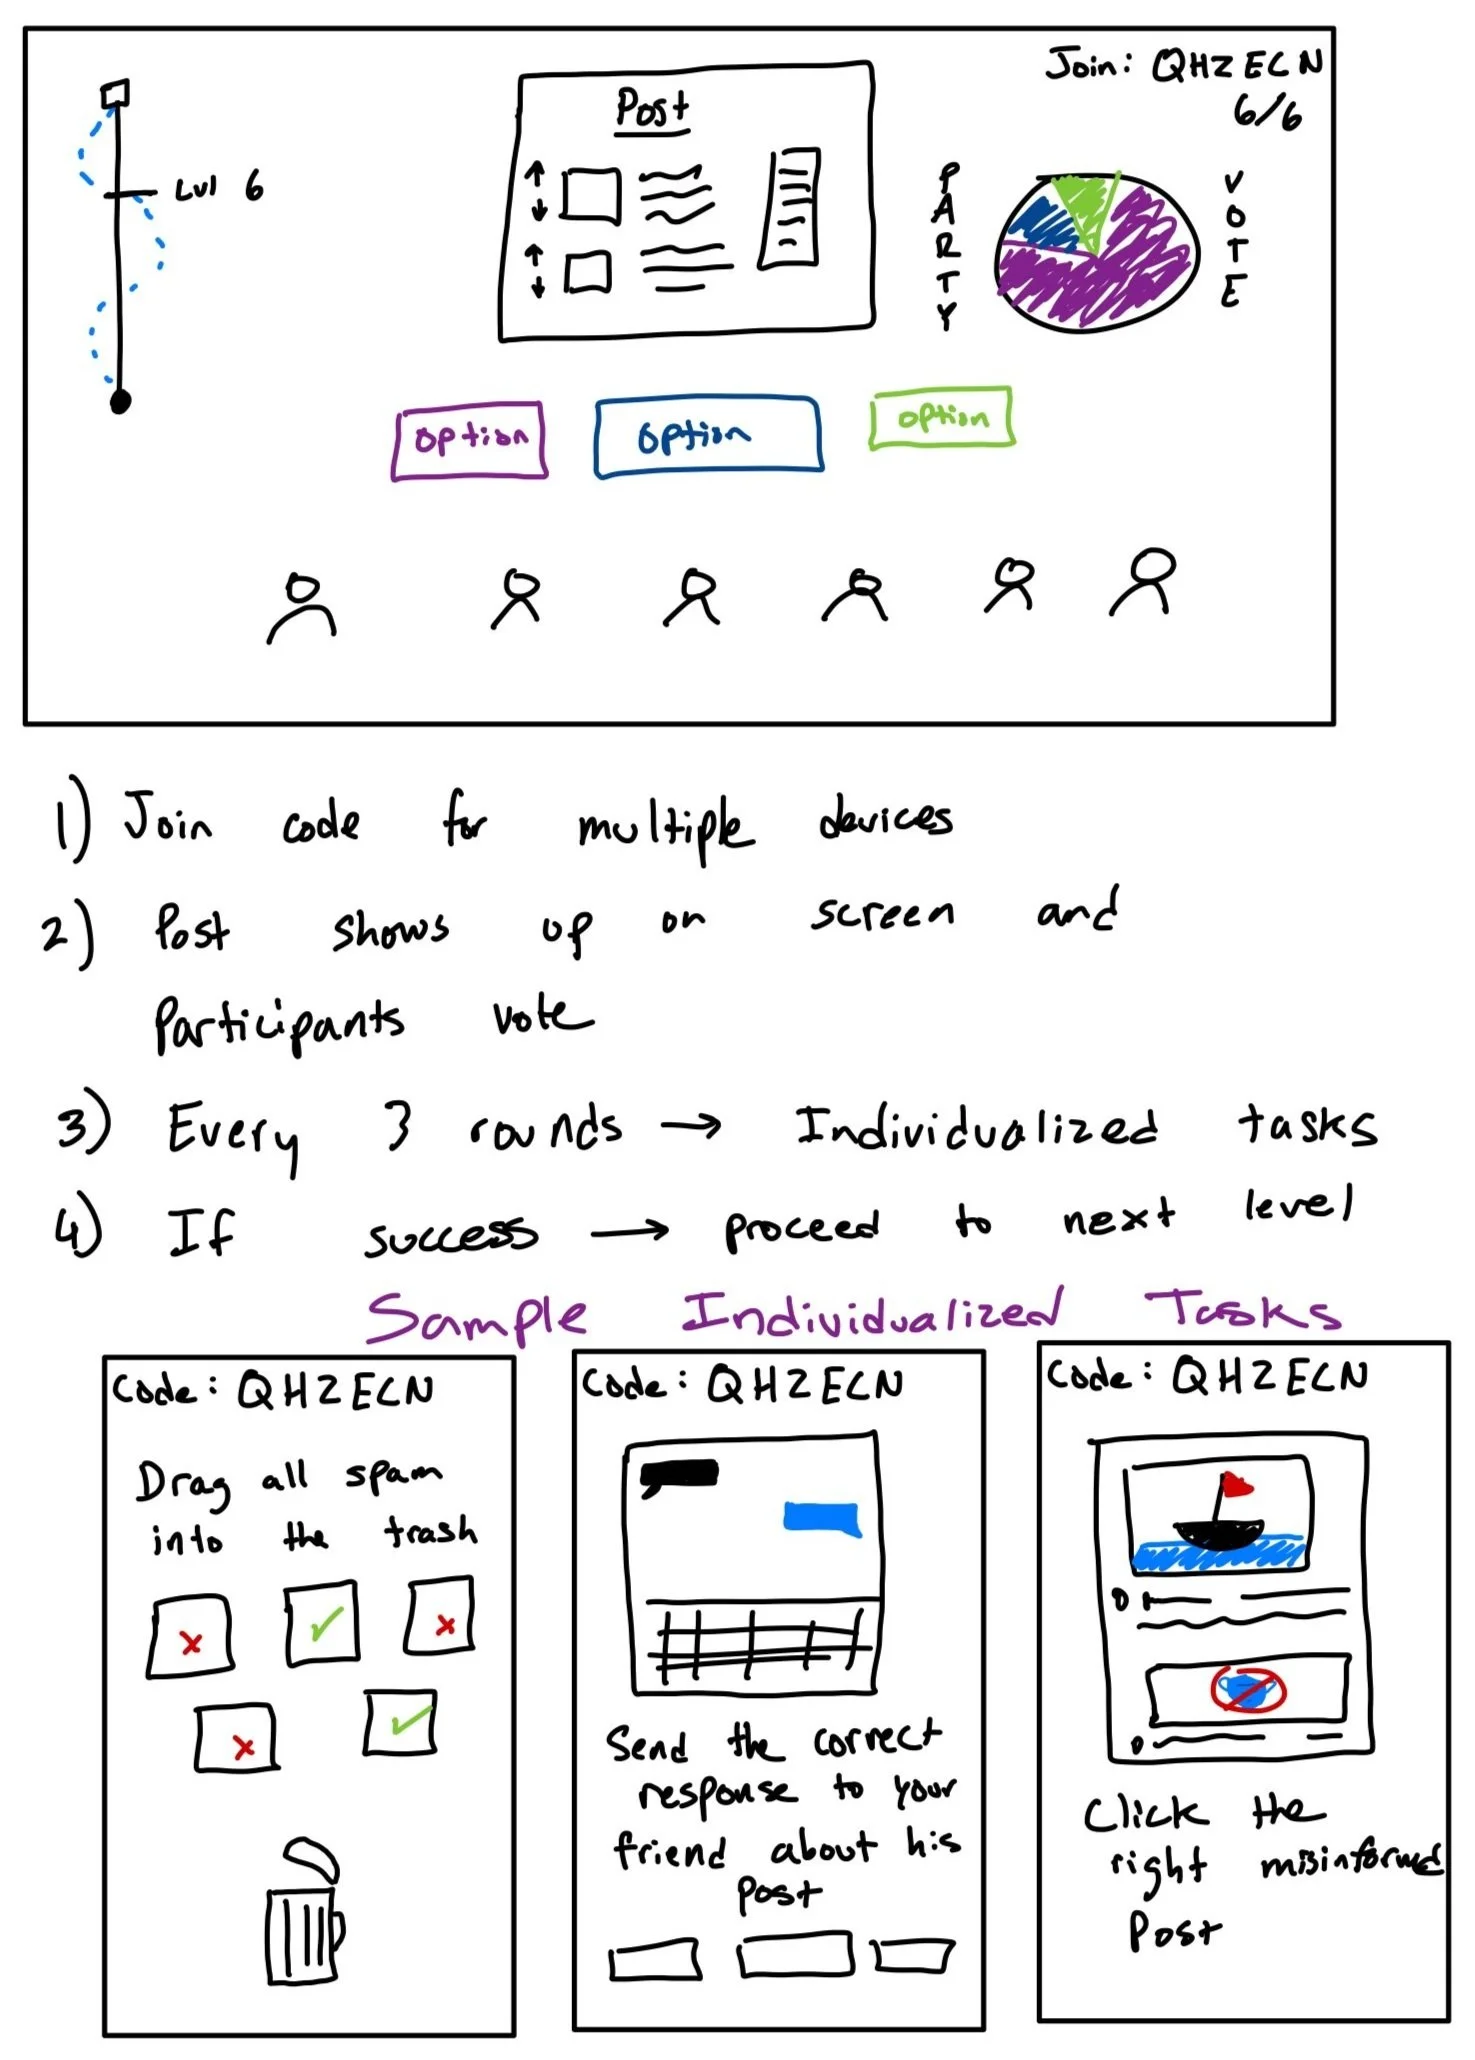 Join: QHZECN
6/6
Post
Lvl 6
PARTY
VOTE
option
option
option
1) Join code for multiple devices
2) Post shows up on screen and
Participants vote
3) Every 3 rounds → Individualized tasks
4) If success → proceed to next level
Sample Individualized Tasks
Code: QHZECN
Drag all spam
into the trash
Code: QHZECN
Send the correct
response to your
friend about his
Post
Code: QHZECN
Click the
right misinformed
Post